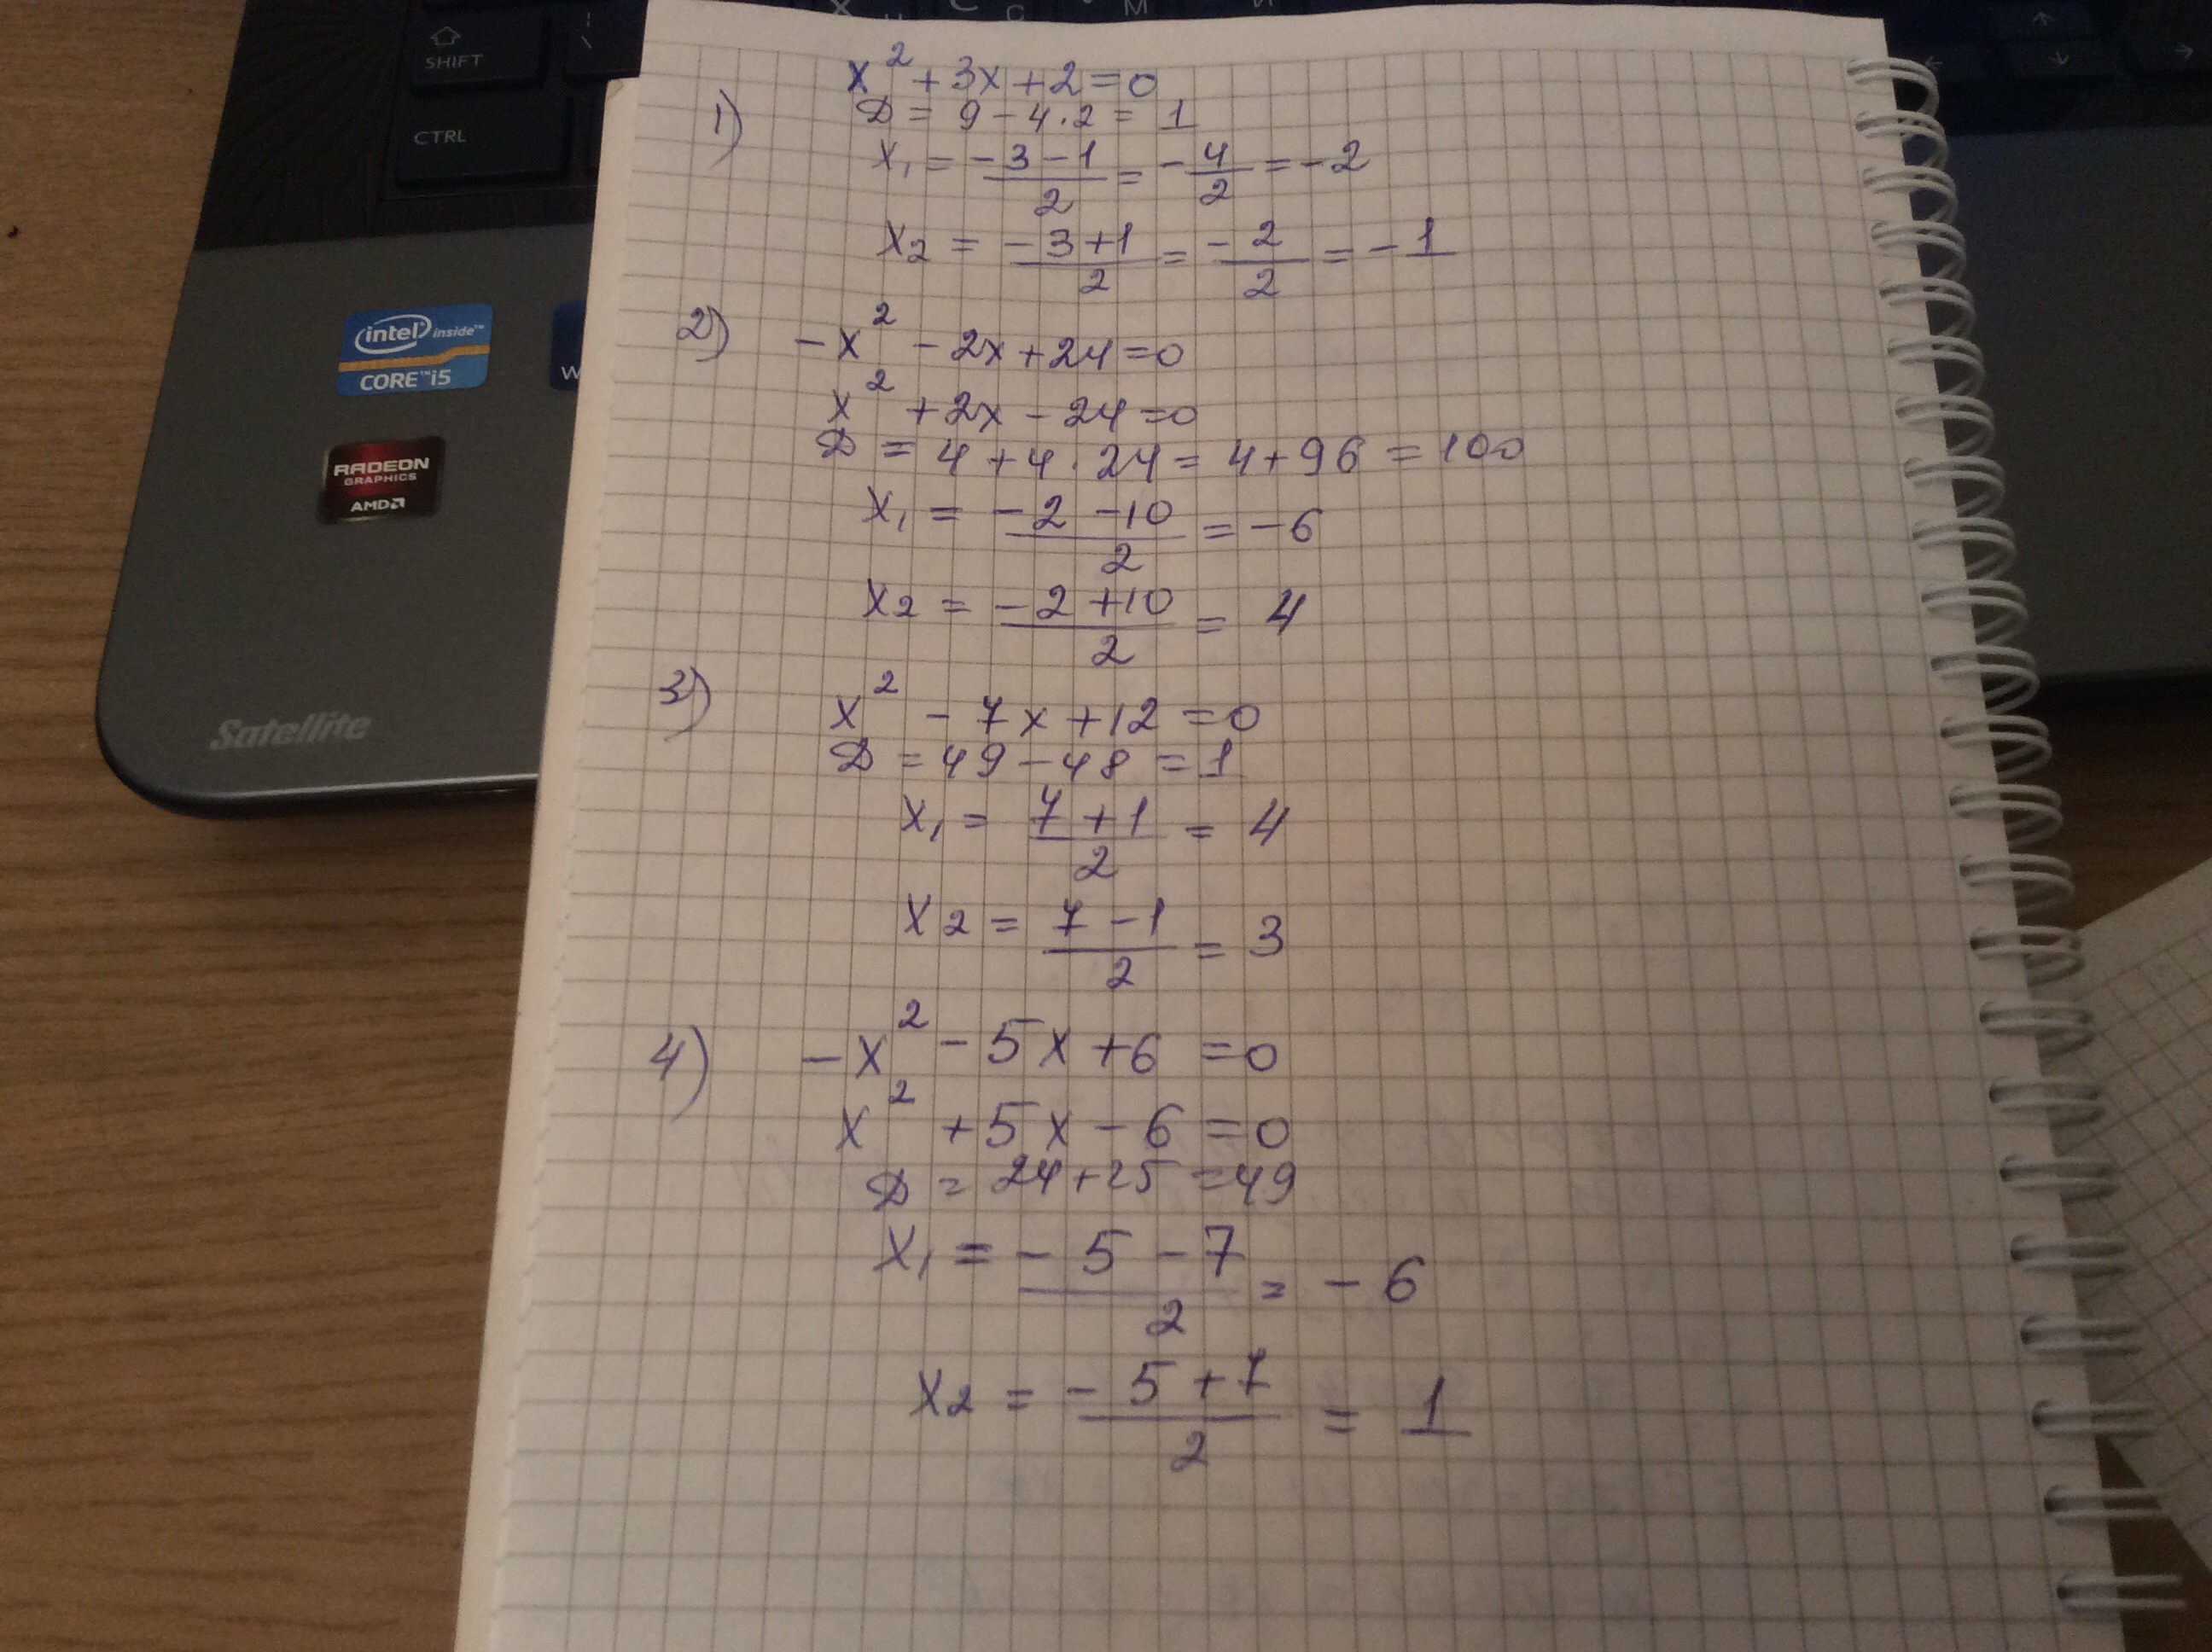 SHIFT
CTRL
intel inside™
CORE™ i5
RADEON
GRAPHICS
AMD
Satellite
1) x² + 3x + 2 = 0
D = 9 - 4·2 = 1
x₁ = (-3-1)/2 = -4/2 = -2
x₂ = (-3+1)/2 = -2/2 = -1
2) -x² - 2x + 24 = 0
x² + 2x - 24 = 0
D = 4 + 4·24 = 4 + 96 = 100
x₁ = (-2-10)/2 = -6
x₂ = (-2+10)/2 = 4
3) x² - 7x + 12 = 0
D = 49 - 48 = 1
x₁ = (7+1)/2 = 4
x₂ = (7-1)/2 = 3
4) -x² - 5x + 6 = 0
x² + 5x - 6 = 0
D = 24 + 25 = 49
x₁ = (-5-7)/2 = -6
x₂ = (-5+7)/2 = 1